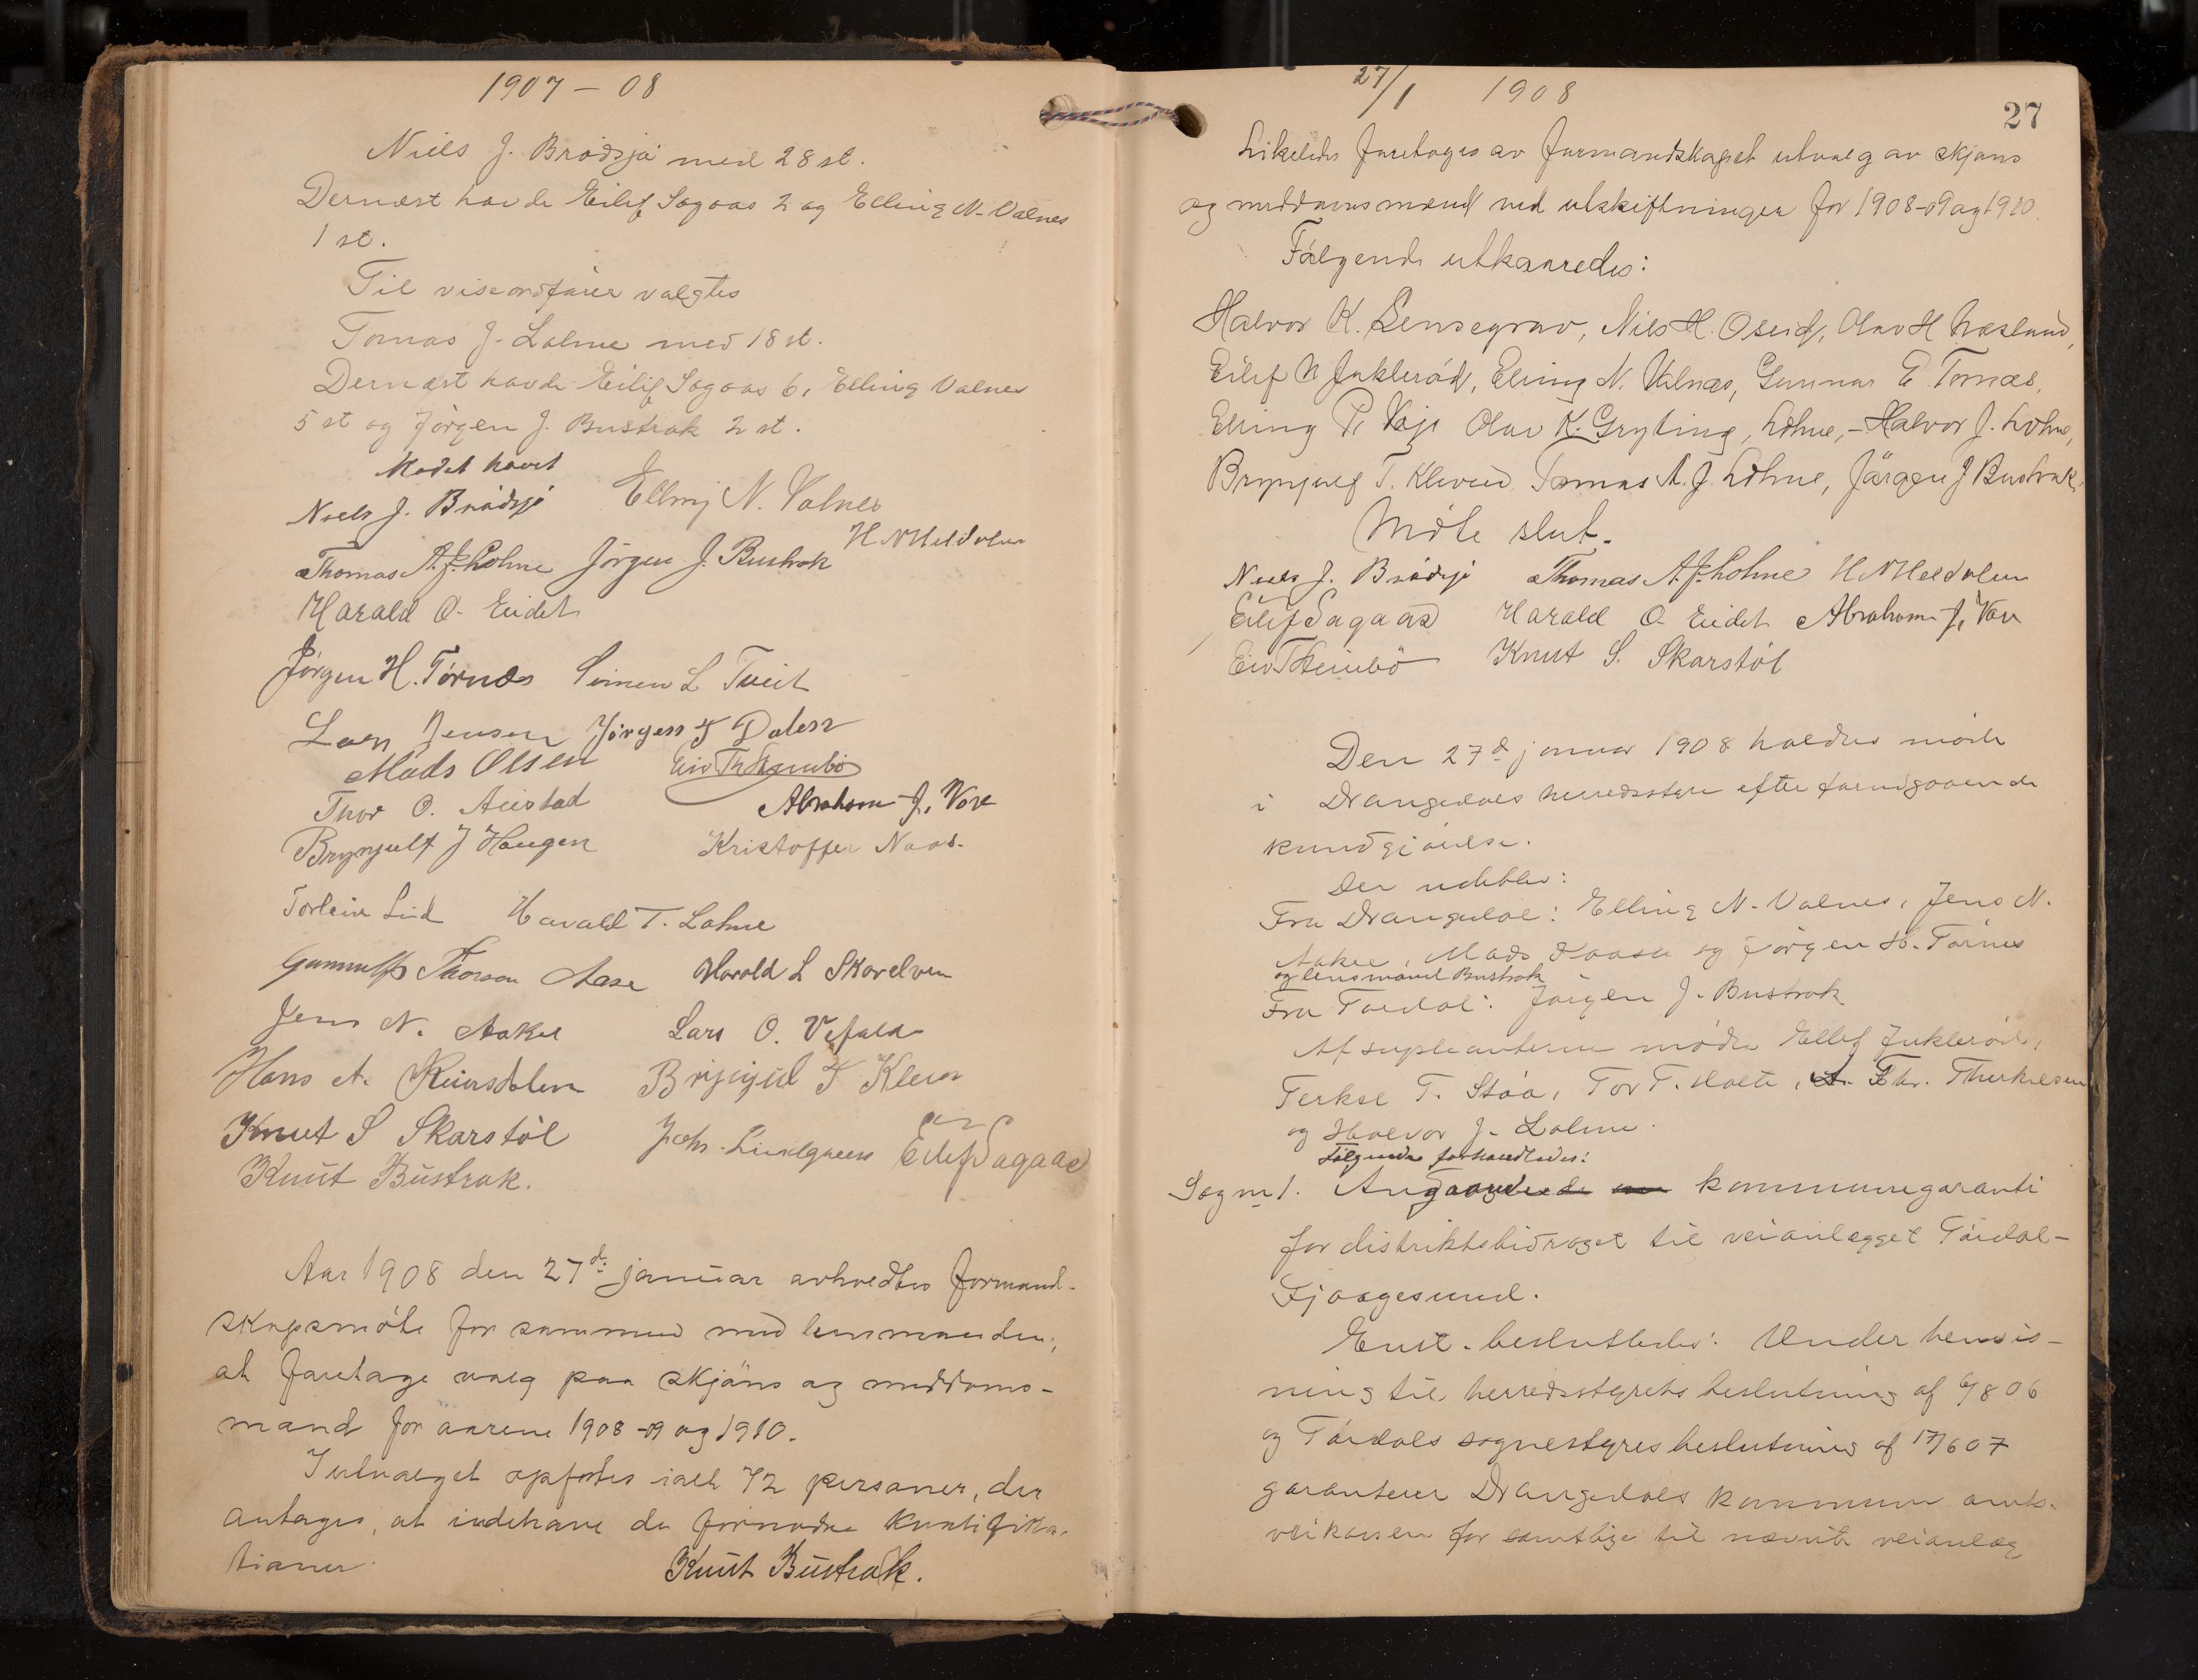 1907 - 08
Niels J. Brødsjø med 28 st.
Dernæst havde Eilif Sogaas 2 og Elling N. Valnes
1 st.
Til viseordfører valgtes
Tomas J. Lohne med 18 st.
Dernæst havde Eilif Sogaas 6, Elling Valnes
5 st og Jørgen J. Bustrak 2 st.
Mødet hævet
Niels J. Brødsjø Elling N. Valnes
Thomas A. J. Lohne Jørgen J. Bustrak H N Heldalen
Harald O. Eidet
Jørgen H. Tørnes Simen L Tveit
Lars Jensen Jørgen T Dalen
Mads Olsen Eiv Th Stenbø
Thor O. Austad Abraham J. Vore
Brynjulf J Haugen Kristoffer Naas.
Torleiv Lid Havald T. Lohne
Gunnulf Thorson Aase Harald L Skarelven
Jens N. Aakre Lars O. Vefald
Hans A. Reinsdalen Brynjul T Kleven
Knut S Skarstøl Joh. Lindgreen Eilif Sagaas
Knut Bustrak.
Aar 1908 den 27d: januar avholdtes formand-
skapsmøte for sammen med lensmanden,
at foretage valg paa skjøns og meddoms-
mænd for aarene 1908-09 og 1910.
I utvalget opførtes ialt 72 personer, der
antages, at indehave de fornødne kvalifika-
tioner.
Knut Bustrak.
27/1 1908
27
Likeledes foretoges av formandskapet utvalg av skjøns
og meddomsmænd ved utskiftninger for 1908-09 og 1910.
Følgende utkaaredes:
Halvor K. Sensegrav, Nils H. Oseid, Olav H Næsland,
Eilif N Juklerød, Elling N. Valnes, Gunnar E. Tørnæs,
Elling P. Voje Olav K. Gryting, Lohne, - Halvor J. Lohne,
Brynjulf T. Kleven Tomas A. J. Lohne, Jørgen J Bustrak.
Møte slut.
Niels J. Brødsjø Thomas A. J. Lohne H N Heldalen
Eilif Sagaas Harald O. Eidet Abraham J. Vore
Eiv T Stenbø Knut S. Skarstøl
Den 27d januar 1908 holdtes møde
i Drangedals herredsstyre efter forudgaaende
kundgjørelse.
Der udeblev:
Fra Drangedal: Elling N. Valnes, Jens N.
Aakre, Mads Haase og Jørgen H. Tørnes
og lensmand Bustrak
Fra Tørdal: Jørgen J. Bustrak
Af supleanterne mødte Ellef Juklerød,
Terkse T. Støa, Tor T. Holte, Chr. Therkelsen
og Halvor J. Lohne.
Følgende forhandledes:
Sag no 1. Angaaende kommunegaranti
for distriktsbidraget til veianlægget Tørdal-
Fjaagesund.
Enst. besluttedes: Under henvis-
ning til herredsstyrets beslutning af 6/8 06
og Tørdals sognestyres beslutning af 17/6 07
garanterer Drangedals kommune amts-
veikassen for samtlige til nævnte veianlæg